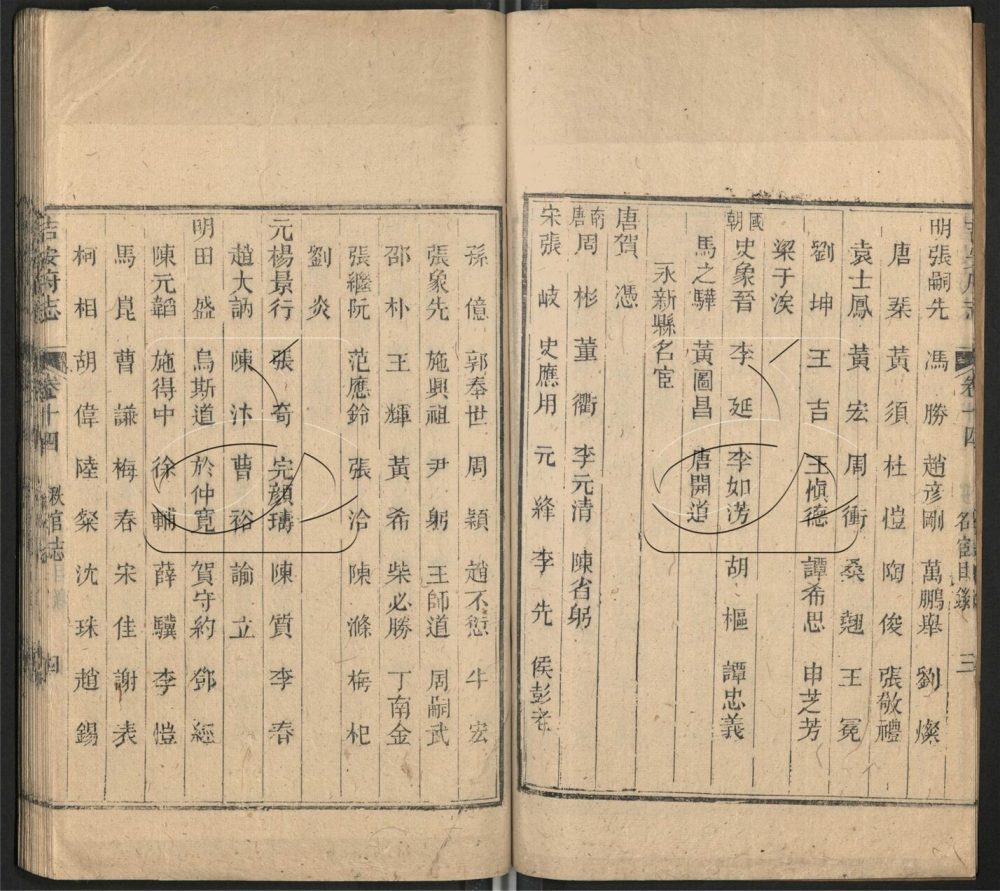 明張嗣先 馮勝 趙彥剛 萬鵬舉 劉燦
唐棐 黃須 杜愷 陶俊 張敬禮
袁士鳳 黃宏 周衝 桑翹 王冕
劉坤 王吉 王愼德 譚希思 申芝芳
梁于涘
國朝史象晉 李延 李如滂 胡樞 譚忠義
馬之驊 黃圖昌 唐開道
永新縣名宦
唐賀憑
南唐周彬 董衢 李元清 陳省躬
宋張岐 史應用 元絳 李先 侯彭老
孫億 郭奉世 周穎 趙不愆 牛宏
張象先 施興祖 尹躬 王師道 周嗣武
邵朴 王輝 黃希 柴必勝 丁南金
張繼阮 范應鈴 張洽 陳滌 梅杞
劉炎
元楊景行 張奇 完顏璹 陳質 李春
趙大訥 陳汴 曹裕 諭立
明田盛 烏斯道 於仲寬 賀守約 鄧經
陳元韜 施得中 徐輔 薛驥 李愷
馬崑 曹謙 梅春 宋佳 謝表
柯相 胡偉 陸粲 沈珠 趙錫
吉安府志 卷十四 秩官志 四